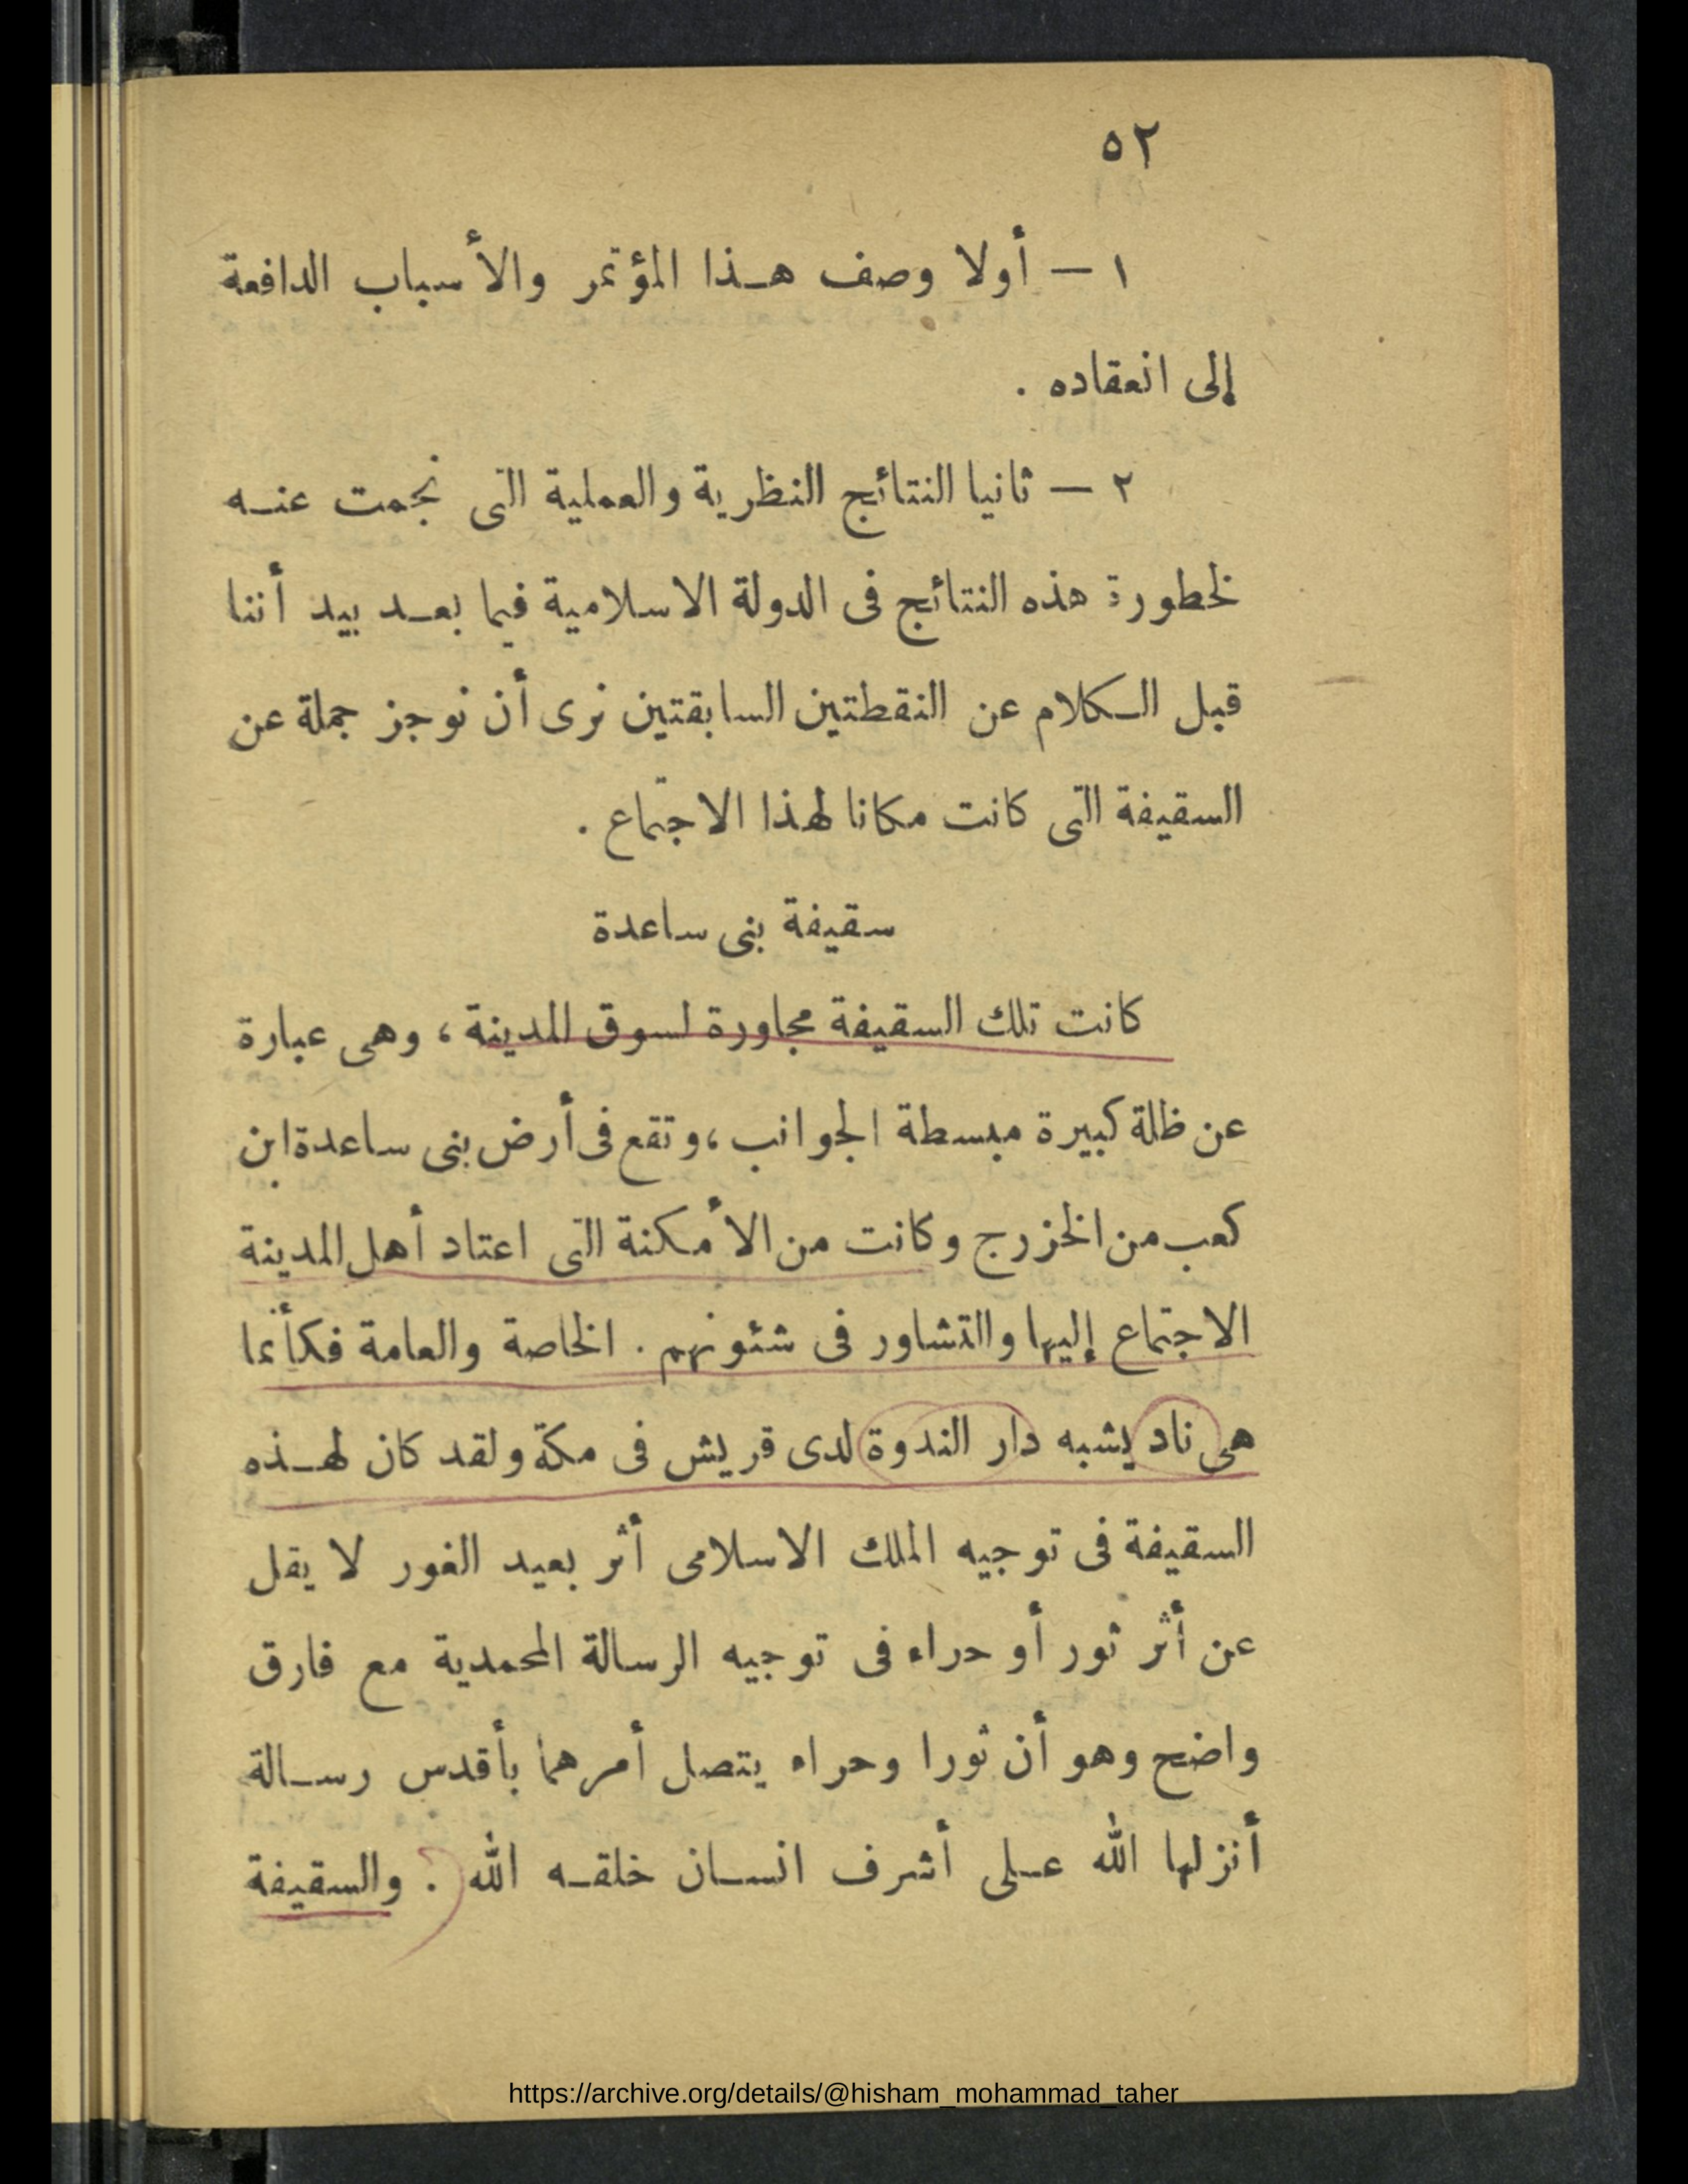 ٥٢
١ — أولا وصف هذا المؤتمر والأسباب الدافعة
إلى انعقاده .
٢ — ثانيا النتائج النظرية والعملية التى نجمت عنه
لخطورة هذه النتائج فى الدولة الاسلامية فيما بعد بيد أننا
قبل الكلام عن النقطتين السابقتين نرى أن نوجز جملة عن
السقيفة التى كانت مكانا لهذا الاجتماع .
سقيفة بنى ساعدة
كانت تلك السقيفة مجاورة لسوق المدينة ، وهى عبارة
عن ظلة كبيرة مبسطة الجوانب ، وتقع فى أرض بنى ساعدة ابن
كعب من الخزرج وكانت من الأمكنة التى اعتاد أهل المدينة
الاجتماع إليها والتشاور فى شئونهم . الخاصة والعامة فكأنما
هى ناد يشبه دار الندوة لدى قريش فى مكة ولقد كان لهذه
السقيفة فى توجيه الملك الاسلامى أثر بعيد الغور لا يقل
عن أثر ثور أو حراء فى توجيه الرسالة المحمدية مع فارق
واضح وهو أن ثورا وحراء يتصل أمرهما بأقدس رسالة
أنزلها الله على أشرف انسان خلقه الله . والسقيفة
https://archive.org/details/@hisham_mohammad_taher